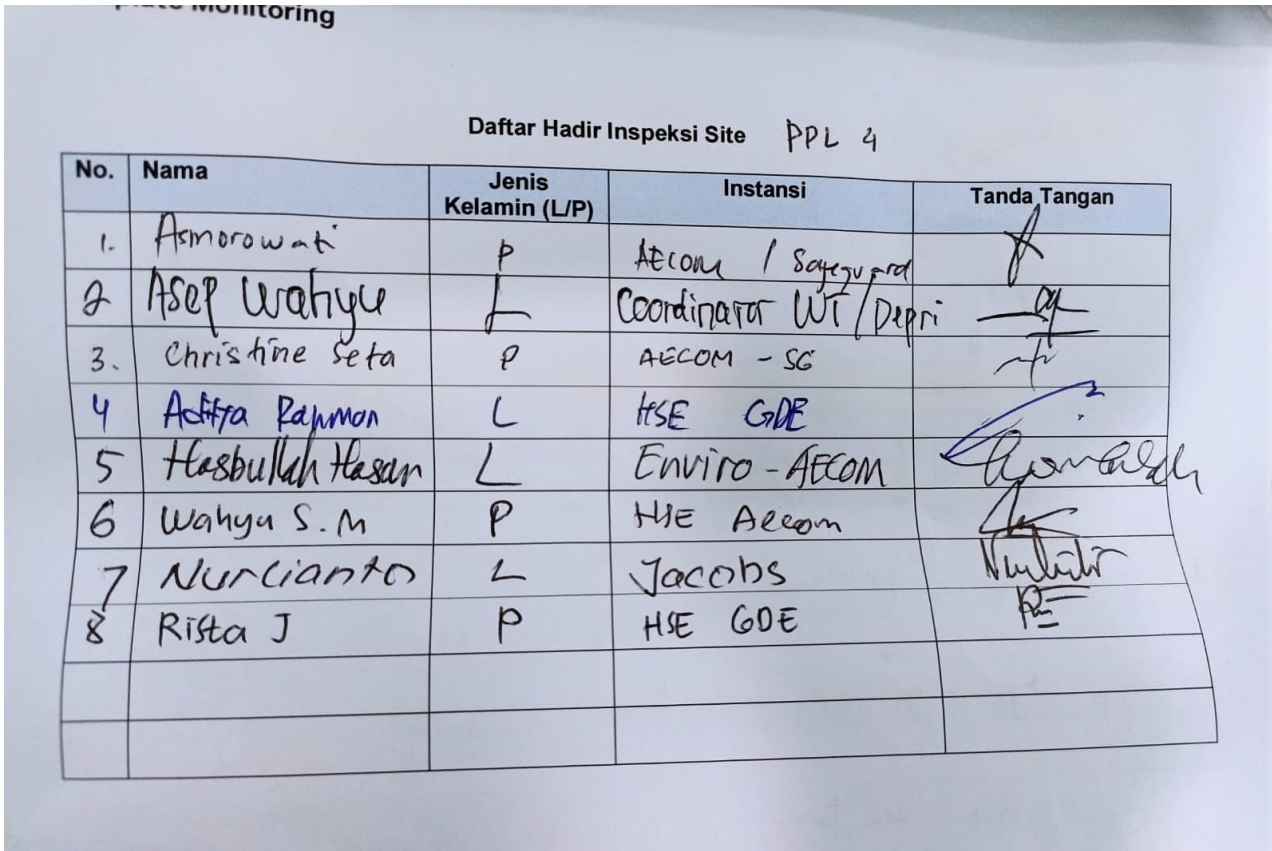 Monitoring
Daftar Hadir Inspeksi Site PPL 4
No. Nama Jenis Kelamin (L/P) Instansi Tanda Tangan
1. Asmorowati P AECOM / Safeguard
2 Asep Wahyu L Coordinator WT / Depri
3. Christine Seta P AECOM - SG
4 Aditya Rahman L HSE GDE
5 Hasbullah Hasan L Enviro - AECOM
6 Wahyu S.M P HSE Aecom
7 Nurcianto L Jacobs
8 Rista J P HSE GDE